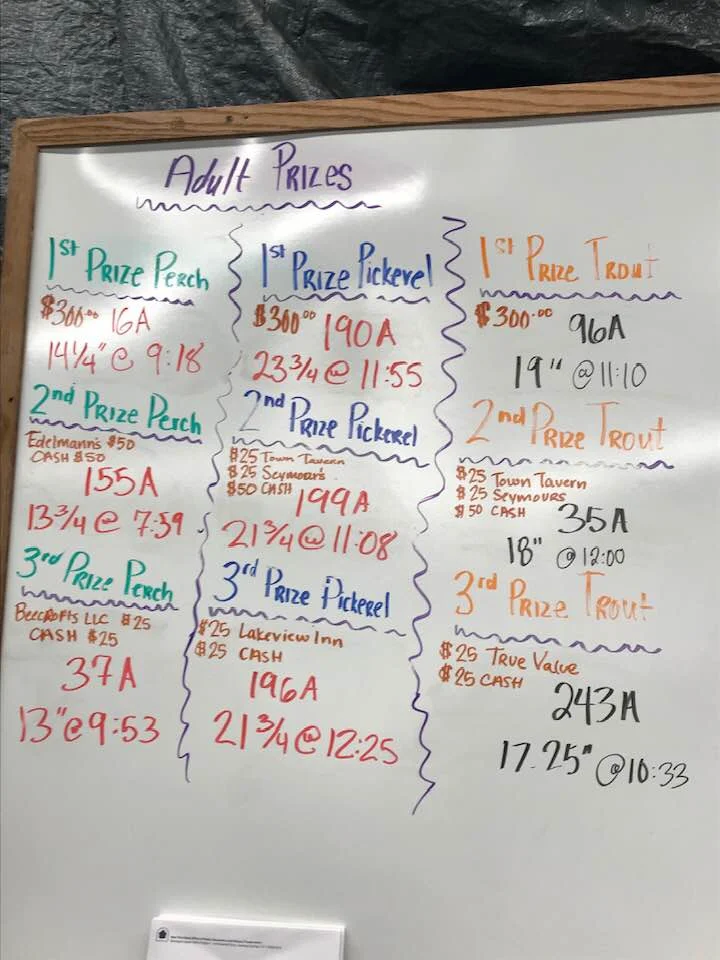 Adult Prizes
1st Prize Perch
$300.00 16A
14 1/4" @ 9:18
2nd Prize Perch
Edelmann's $50
CASH $50
155A
13 3/4 @ 7:59
3rd Prize Perch
Beecrofts LLC $25
CASH $25
37A
13" @ 9:53
1st Prize Pickerel
$300.00 190A
23 3/4 @ 11:55
2nd Prize Pickerel
$25 Town Tavern
$25 Seymours
$50 CASH 199A
21 3/4 @ 11:08
3rd Prize Pickerel
$25 Lakeview Inn
$25 CASH
196A
21 3/4 @ 12:25
1st Prize Trout
$300.00 96A
19" @ 11:10
2nd Prize Trout
$25 Town Tavern
$25 Seymours
$50 CASH 35A
18" @ 12:00
3rd Prize Trout
$25 True Value
$25 CASH
243A
17.25" @ 10:33